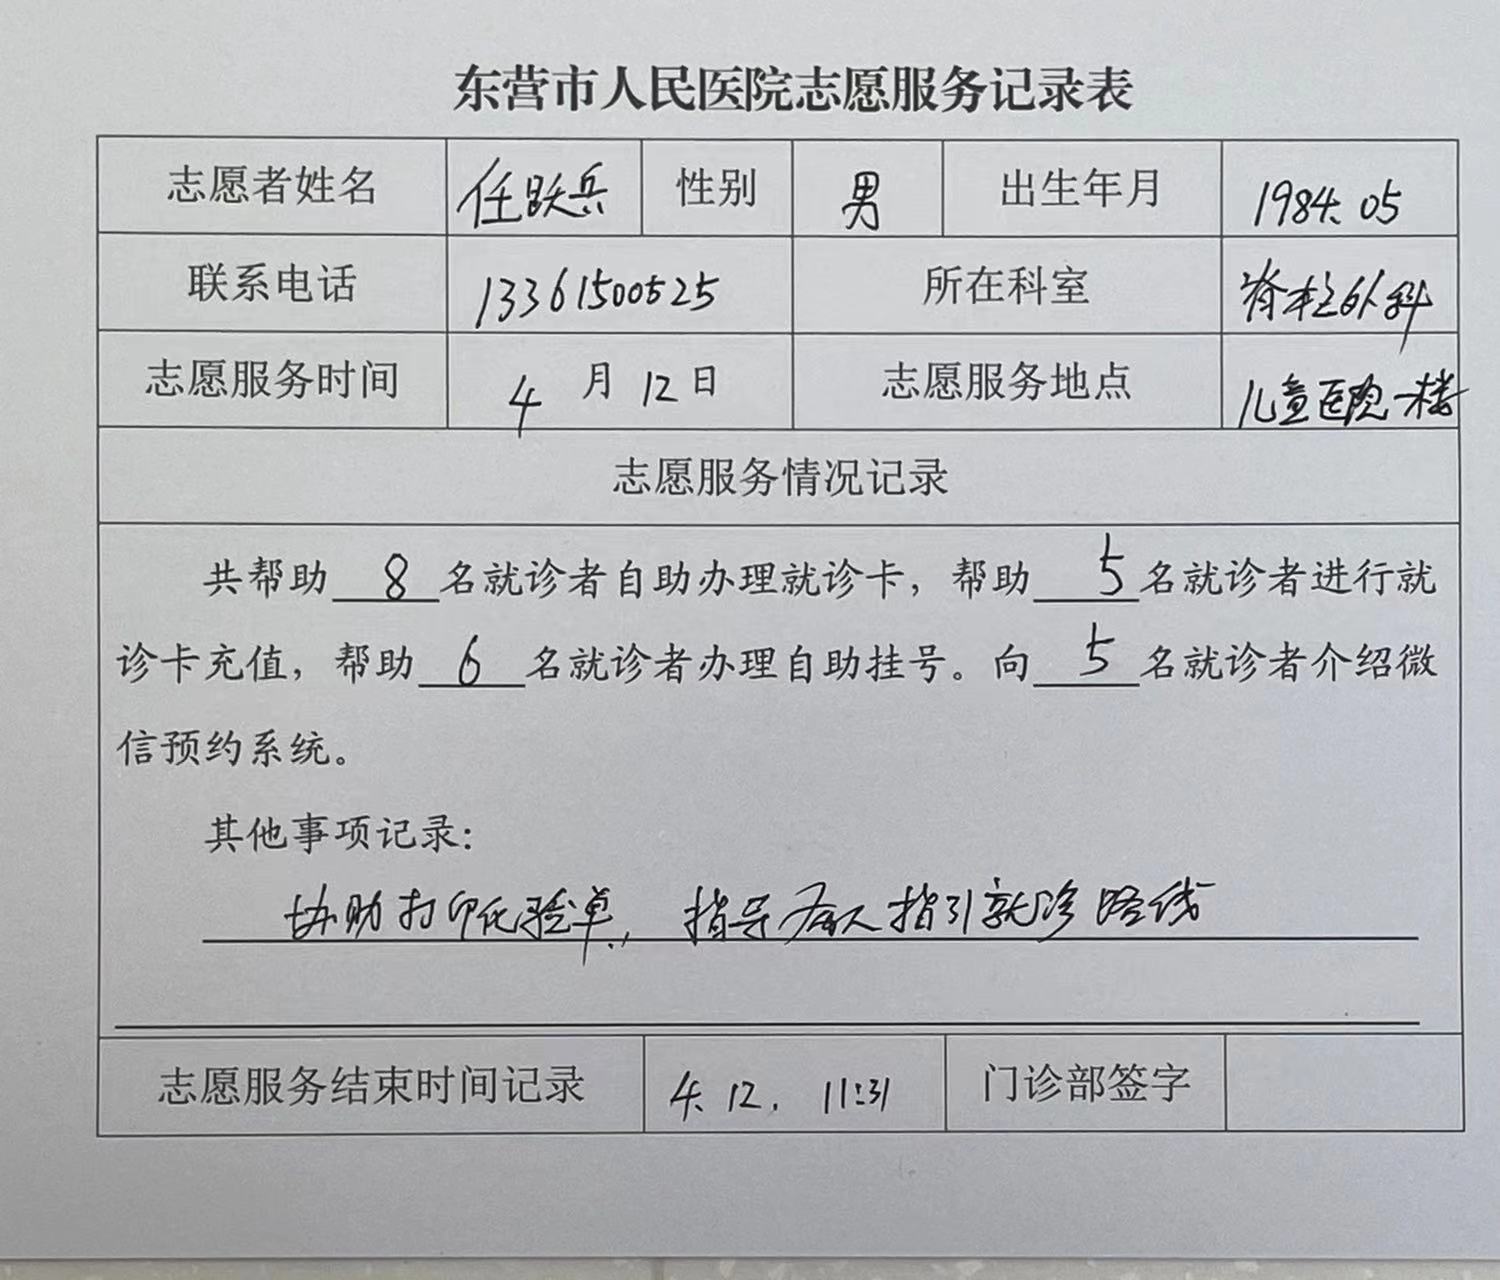 东营市人民医院志愿服务记录表
志愿者姓名 任跃兵 性别 男 出生年月 1984.05
联系电话 13361500525 所在科室 脊柱外科
志愿服务时间 4月12日 志愿服务地点 儿童医院一楼
志愿服务情况记录
共帮助 8 名就诊者自助办理就诊卡，帮助 5 名就诊者进行就
诊卡充值，帮助 6 名就诊者办理自助挂号。向 5 名就诊者介绍微
信预约系统。
其他事项记录：
协助打印化验单，指导病人指引就诊路线
志愿服务结束时间记录 4.12. 11:31 门诊部签字